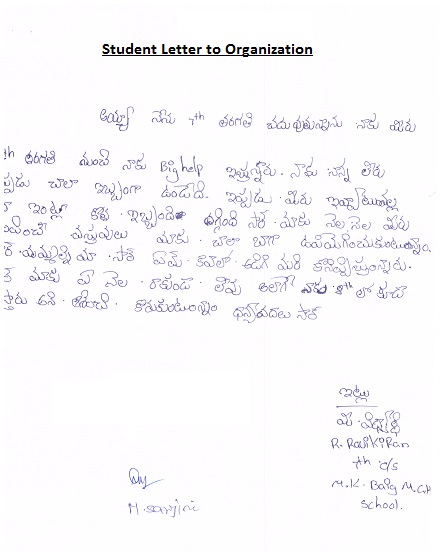 Student Letter to Organization
అయ్యా నేను 7th తరగతి చదువుతున్నాను నాకు మీరు
th తరగతి నుంచి నాకు Big help ఇస్తున్నారు. నాకు నాన్న లేరు
ప్పుడు చాలా ఇబ్బందిగా ఉండేది. ఇప్పుడు మీరు
ఇంట్లో కొంత ఇబ్బంది తగ్గింది సార్. మాకు నెల నెల మీరు
వస్తువులు మాకు చాలా బాగా ఉపయోగించుకుంటున్నాం.
మా సార్ ఏమి కావాలో అడిగి మరి
మాకు ఏ నెల రాకుండా లేవు అలాగే నాకు 8th లో కూడా
స్తారు అని కోరుకుంటున్నాం ధన్యవాదలు సార్
ఇట్లు
మీ విద్యార్థి
R. RaviKiran
7th c/s
M.K. Baig M.C.H
School.